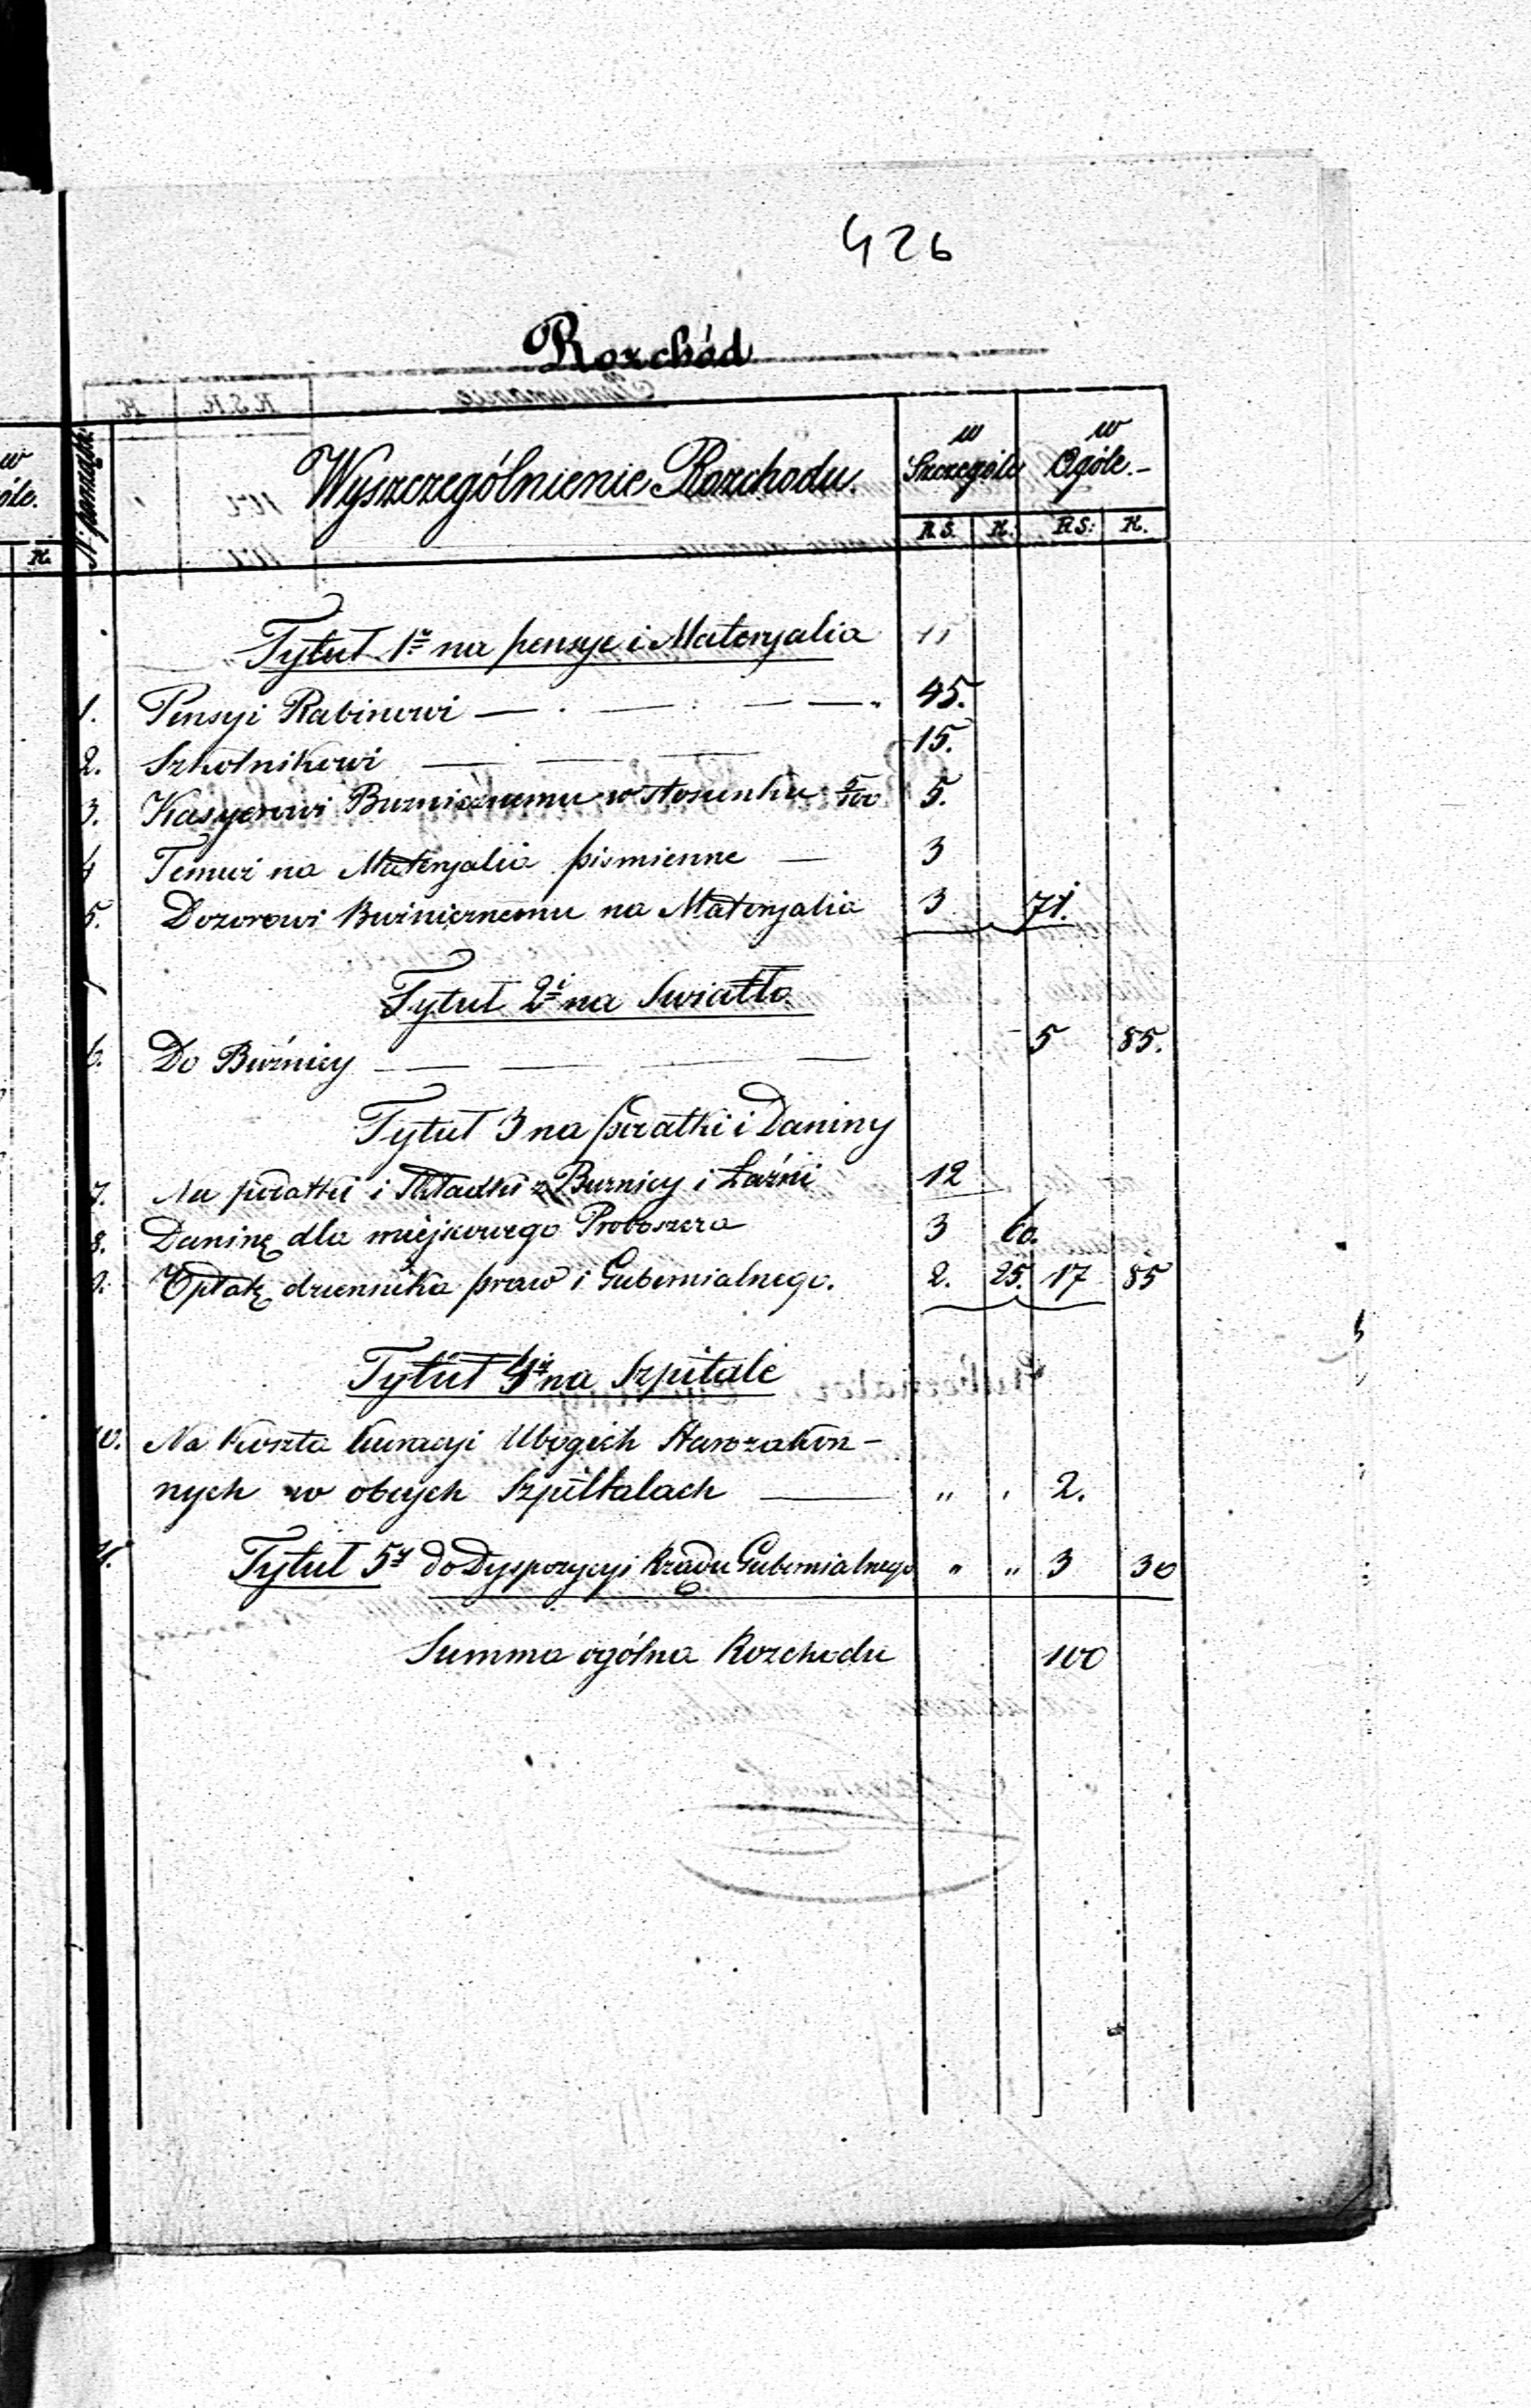 426
Rozchód
N: porządk: Wyszczególnienie Rozchodu. w Szczególe w Ogóle.-
R.S. K. R.S: K.
Tytuł 1r na pensye i Materyalia
1. Pensyi Rabinowi 45.
2. Szkolnikowi 15.
3. Kasyerowi Bużnicznemu w stosunku 5/100 5.
4 Temuż na Materyalia piśmienne 3
5. Dozorowi Bużnicznemu na Materyalia 3 71.
Tytuł 2i na Swiatło
6. Do Bużnicy 5 85.
Tytuł 3 na podatki i Daniny
7. Na podatki i Składki z Bużnicy i Łaźni 12
8. Daninę dla miejscowego Proboszcza 3 60.
9. Opłatę dziennika praw i Gubernialnego. 2. 25. 17 85
Tytuł 4r na Szpitale
10. Na koszta kuracyi Ubogich Starozakon-
nych w obcych Szpitalach „ „ 2.
11. Tytuł 5y do Dyspozycyi Rządu Gubernialnego „ „ 3 30
Summa ogólna Rozchodu 100